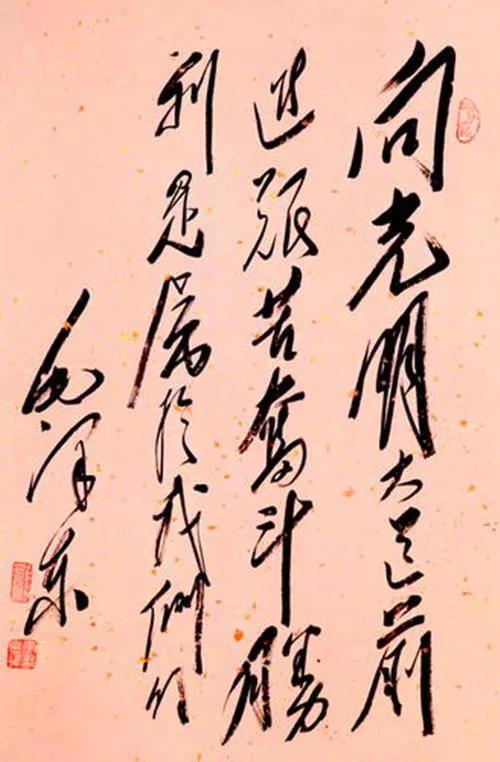 向光明大道前
进艰苦奋斗胜
利是属于我们的
毛泽东